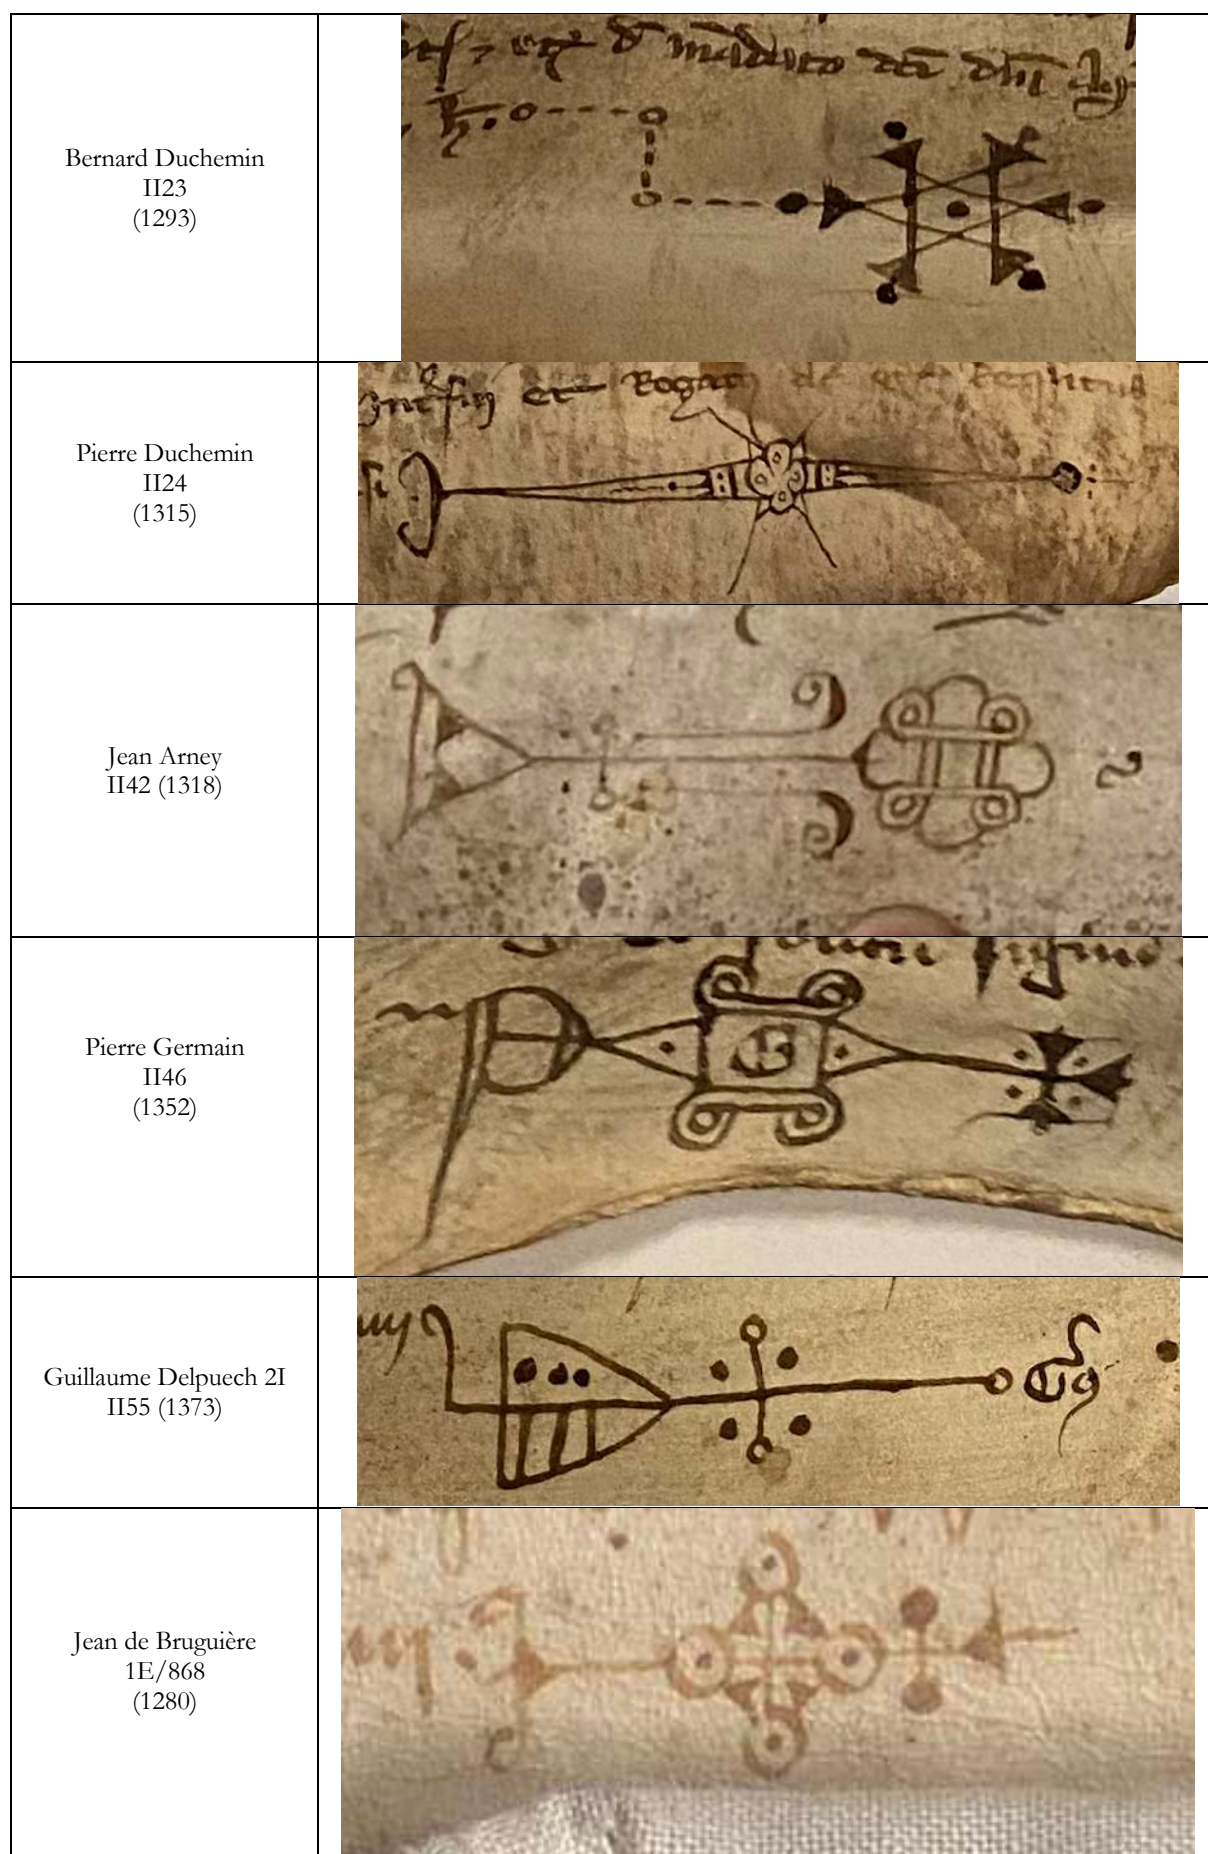 Bernard Duchemin
II23
(1293)
Pierre Duchemin
II24
(1315)
et Rogat
Jean Arney
II42 (1318)
Pierre Germain
II46
(1352)
Guillaume Delpuech 2I
II55 (1373)
Jean de Bruguière
1E/868
(1280)